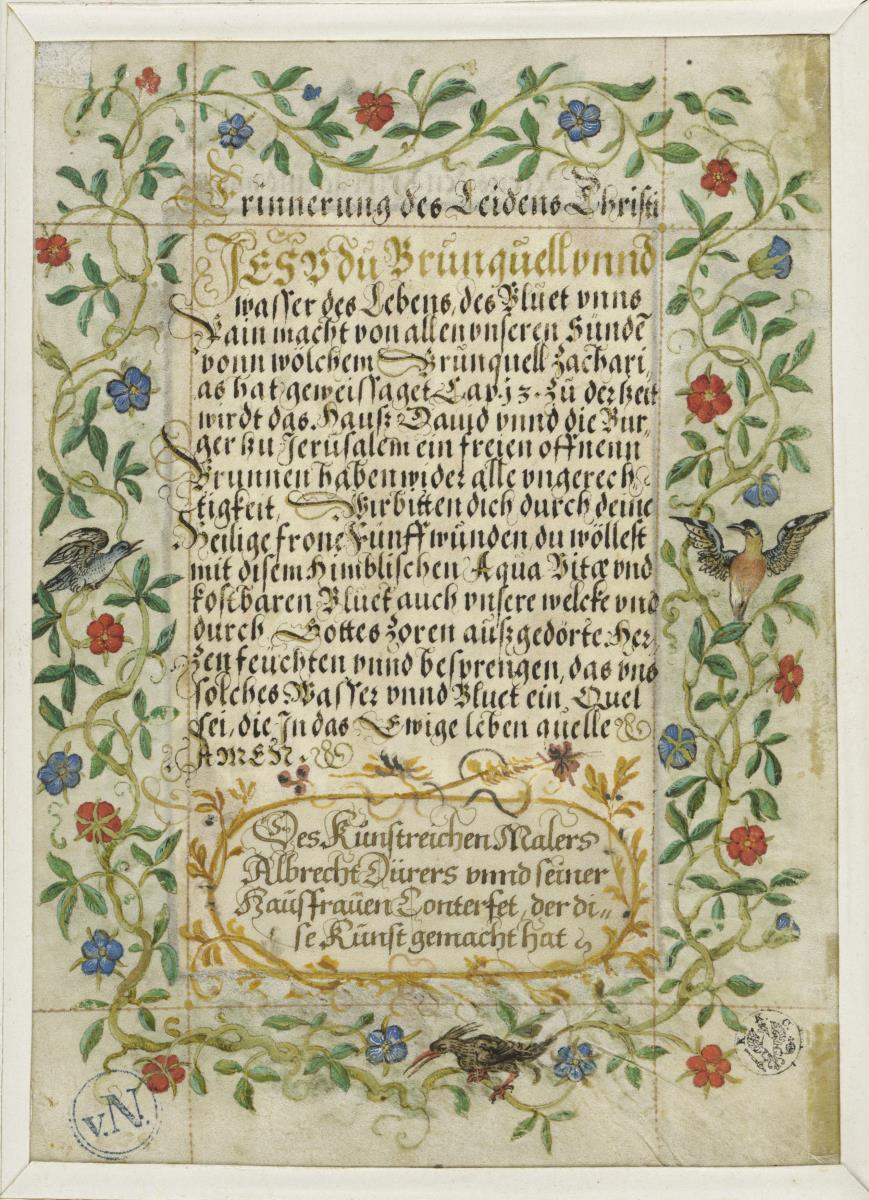 Erinnerung des Leidens Christi
JESV du Brunquell vnnd
wasser des Lebens, des Bluet vnns
Rain macht von allen vnseren Sündẽ
vonn wölchem Brunquell Zachari,
as hat geweissaget Cap. 13. Zu der Zeit
wirdt das Hauß Dauid vnnd die Bur,
ger zu Jerusalem ein freien offnenn
Brunnen haben wider alle vngerech,
tigkeit, Wir bitten dich durch deine
Heilige frone Fünff wunden, du wöllest
mit disem Himblischen Aqua Vitæ vnd
kostbaren Bluet auch vnsere welcke vnd
durch Gottes Zoren außgedörte Her,
zen feuchten vnnd besprengen, das vns
solches Wasser vnnd Bluet ein Quel
sei, die Jn das Ewige leben quelle
AMEN.
Des Kunstreichen Malers
Albrecht Dürers vnnd seiner
Haußfrauen Conterfet, der di,,
se Kunst gemacht hat
v.N.